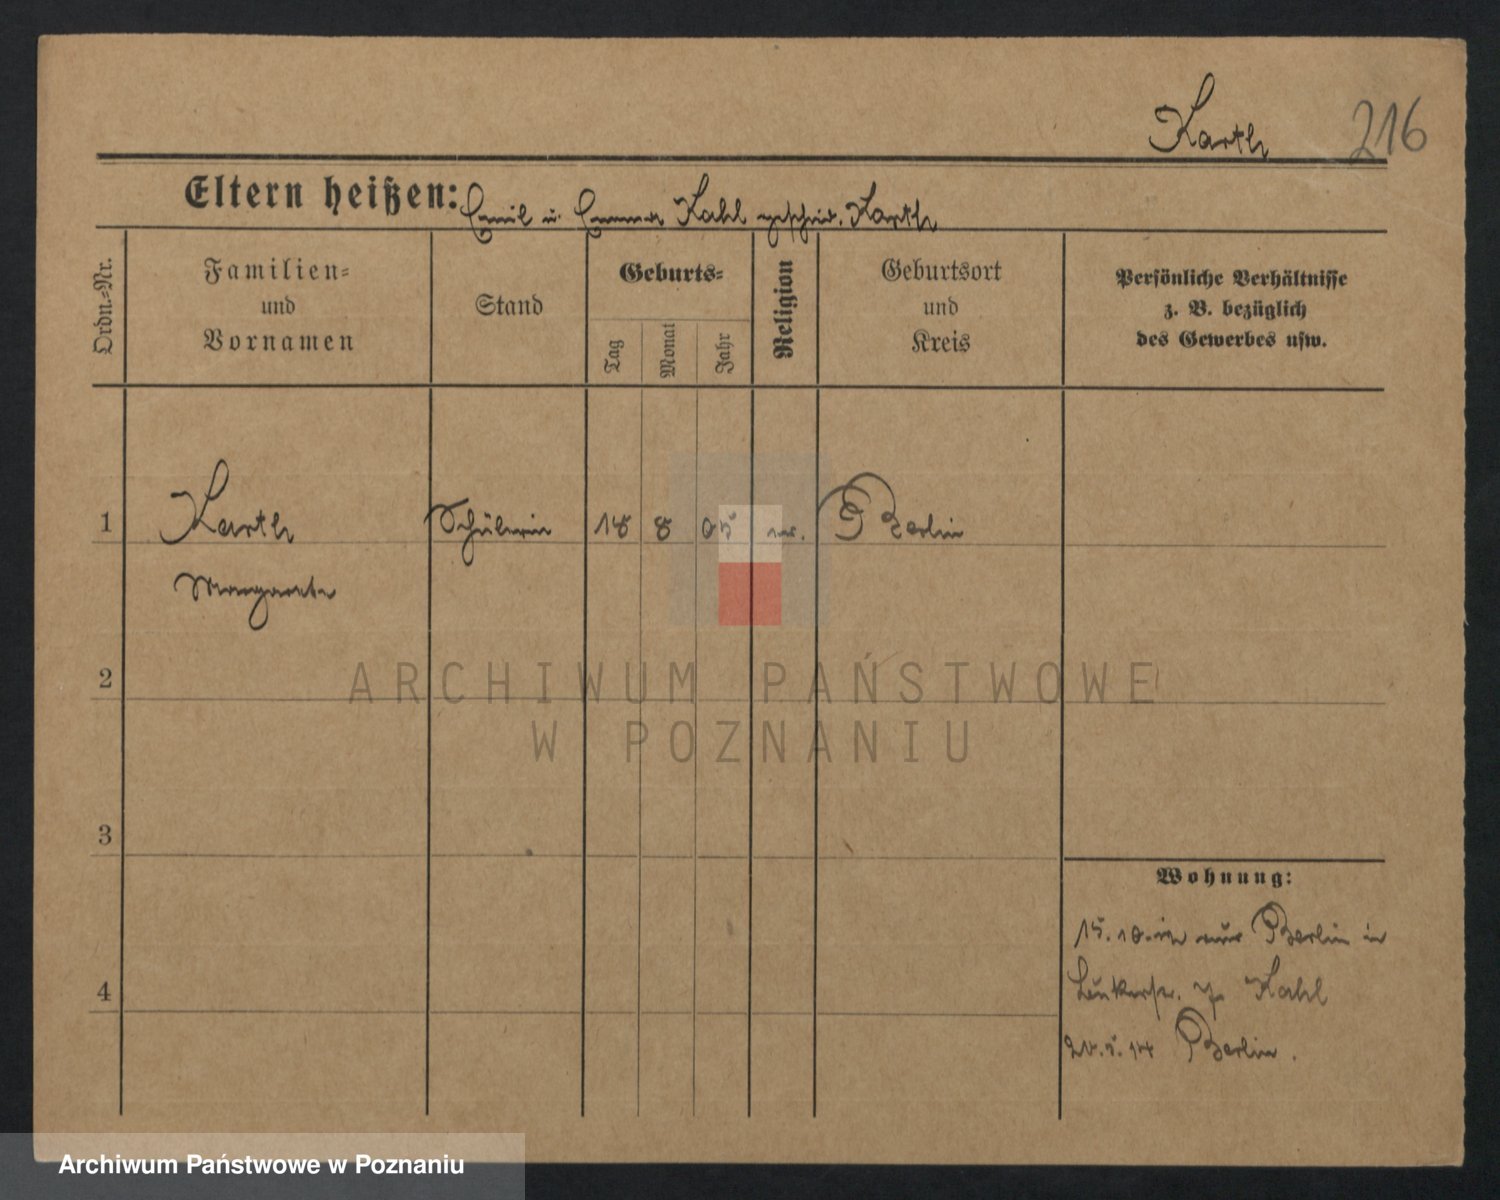 Karth 216
Eltern heißen: Emil u. Emma Kahl geschied. Karth
Ordn.=Nr.
Familien=
und
Vornamen
Stand
Geburts=
Tag
Monat
Jahr
Religion
Geburtsort
und
Kreis
Persönliche Verhältnisse
z. B. bezüglich
des Gewerbes usw.
1 Karth Schülerin 18 8 05 ev. Berlin
Margarete
2
3
4
Wohnung:
15.10. aus Berlin in
7 Kahl
14 Berlin.
ARCHIWUM PAŃSTWOWE
W POZNANIU
Archiwum Państwowe w Poznaniu